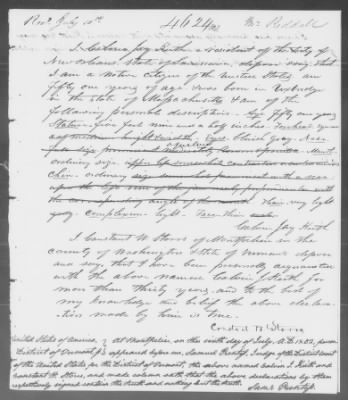 Recd July 10th 4624 Mr Reddall
I Calvin Jay Keith a resident of the City of
New Orleans State of Louisiana, depose & say, that
I am a native citizen of the United States, am
fifty one years of age, was born in Uxbridge
in the State of Massachusetts & am of the
following personal description. Age fifty one years
Stature five feet
ordinary
Chin ordinary
Hair, very light
gray. Complexion light. Face thin
Calvin Jay Keith
I Constant W Storrs of Montpelier in the
County of Washington & State of Vermont depose
and say, that I have been personally acquainted
with the above named Calvin J. Keith for
more than thirty years, and to the best of
my knowledge and belief the above declar-
ation made by him is true.
Constant W Storrs
United States of America, At Montpelier, on this sixth day of July, A.D. 1852,
District of Vermont appeared before me, Samuel Prentiss, Judge of the District Court
of the United States for the District of Vermont, the above named Calvin J. Keith and
Constant W. Storrs, and made solemn oath that the above declarations by them
respectively signed contain the truth and nothing but the truth.
Saml Prentiss